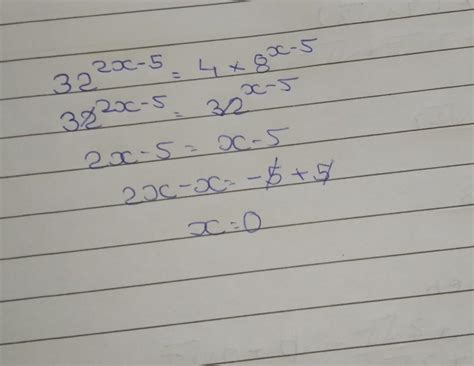 32^{2x-5} = 4 × 8^{x-5}
32^{2x-5} = 32^{x-5}
2x-5 = x-5
2x-x = -5+5
x=0